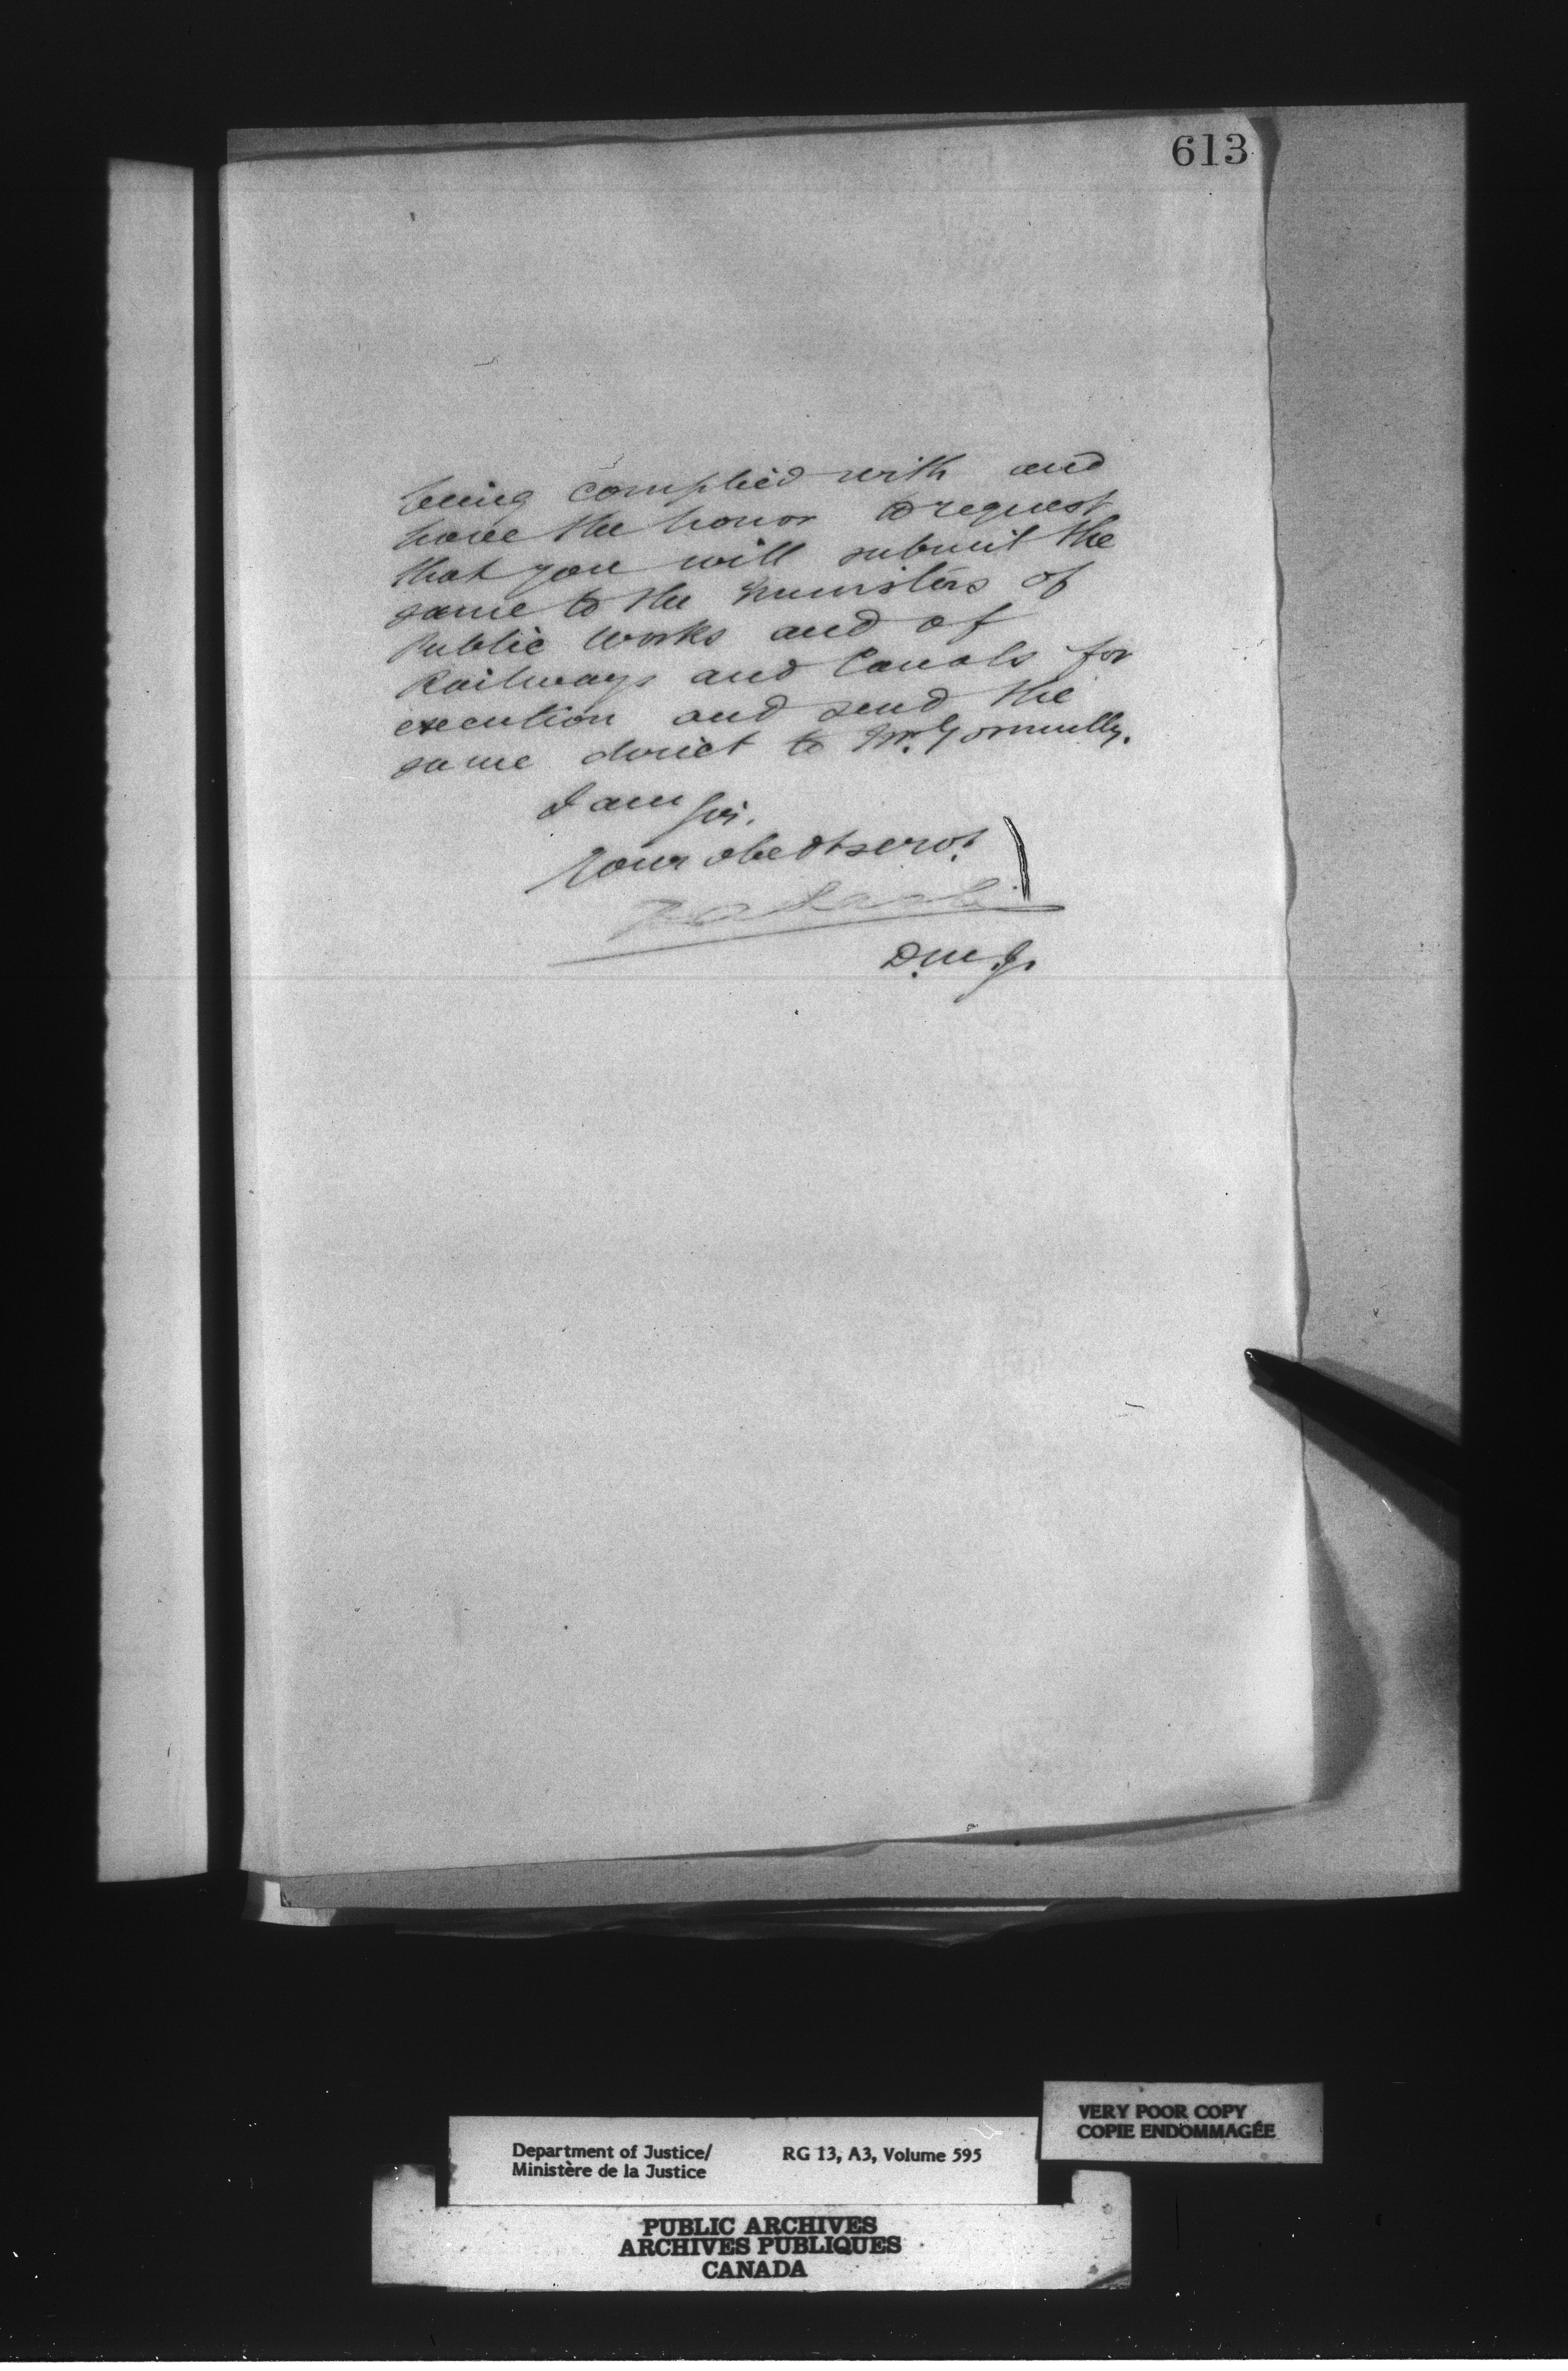 613
being complied with and
have the honor to request
that you will submit the
same to the Ministers of
Public Works and of
Railways and Canals for
execution and send the
same direct to Mr. Gormully.
I am Sir,
Your obedt servt.
D.M.J.
Department of Justice/
Ministère de la Justice
RG 13, A3, Volume 595
VERY POOR COPY
COPIE ENDOMMAGÉE
PUBLIC ARCHIVES
ARCHIVES PUBLIQUES
CANADA